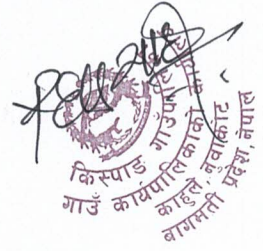 किस्पाङ गाउँपालिका
गाउँ कार्यपालिकाको कार्यालय
काहुले, नुवाकोट
बागमती प्रदेश, नेपाल